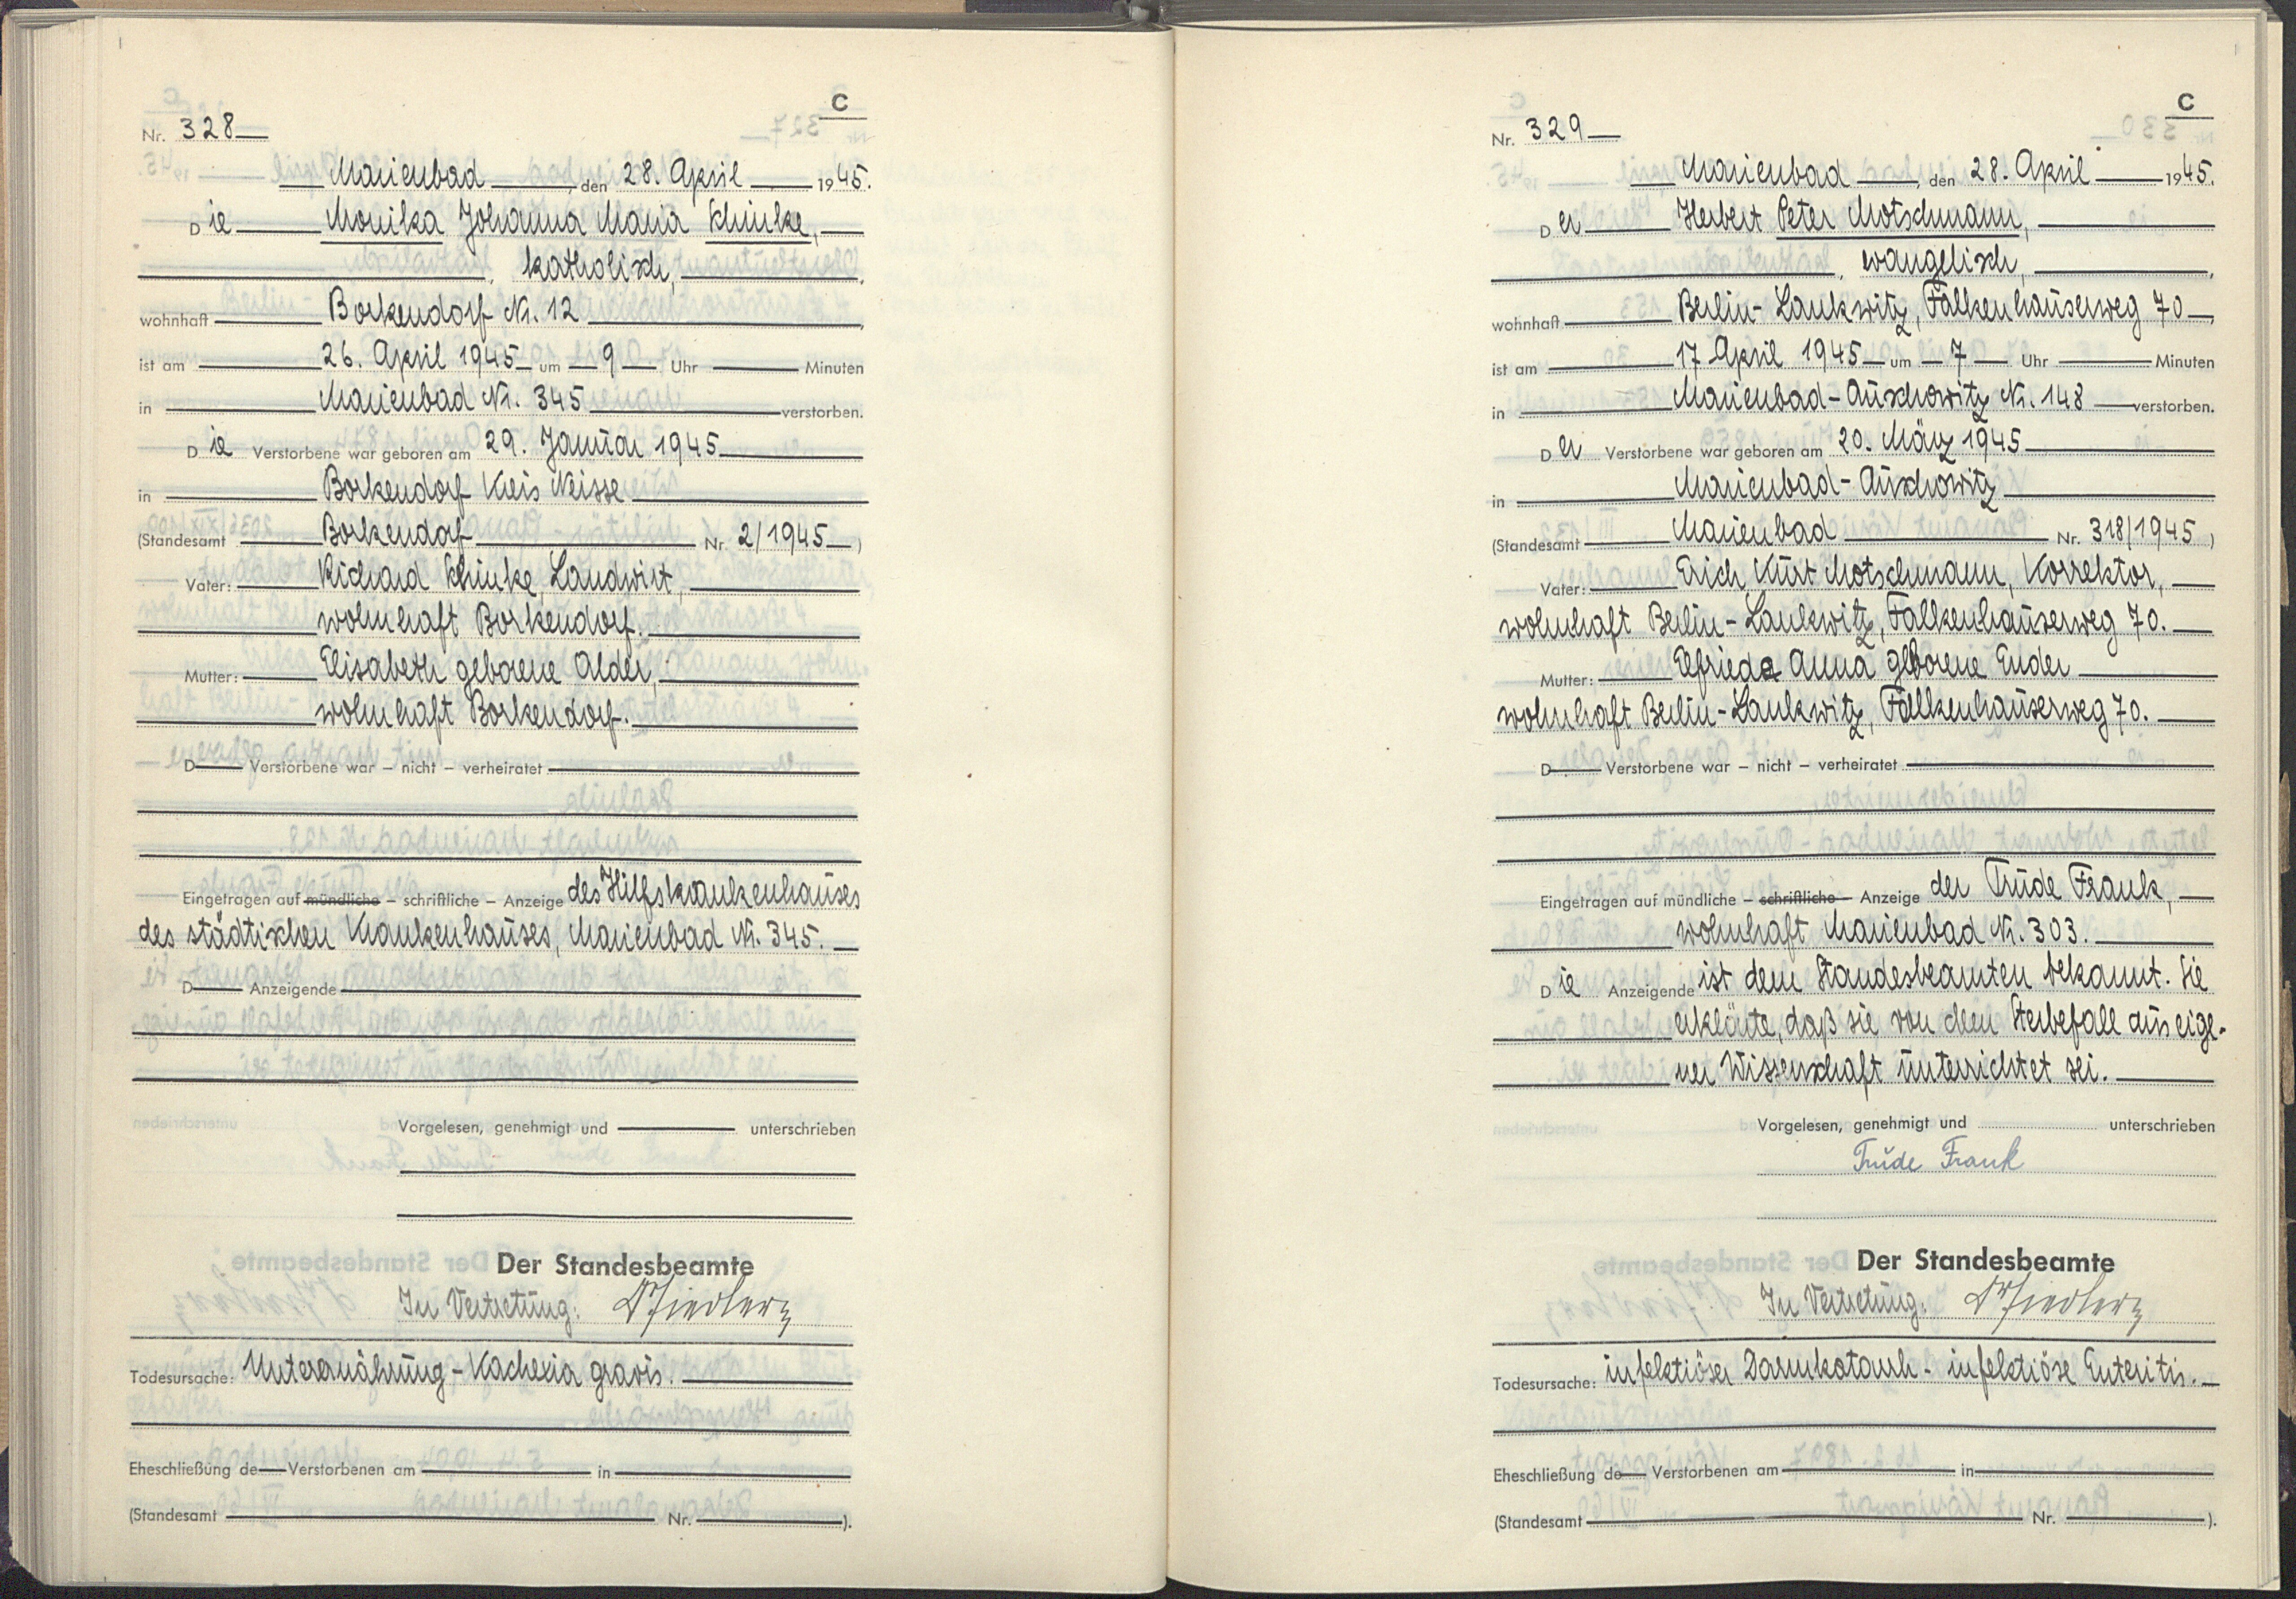 C
Nr. 328
Marienbad, den 28. April 1945.
Die Monika Johanna Maria Schinke,
katholisch,
wohnhaft Borkendorf Nr. 12,
ist am 26. April 1945 um 9 Uhr Minuten
in Marienbad Nr. 345 verstorben.
Die Verstorbene war geboren am 29. Januar 1945
in Borkendorf Kreis Neisse
(Standesamt Borkendorf Nr. 2/1945)
Vater: Richard Schinke, Landwirt,
wohnhaft Borkendorf.
Mutter: Elisabeth geborene Alder,
wohnhaft Borkendorf.
D Verstorbene war – nicht – verheiratet
Eingetragen auf mündliche – schriftliche – Anzeige des Hilfskrankenhauses
des städtischen Krankenhauses, Marienbad Nr. 345.
D Anzeigende
Vorgelesen, genehmigt und unterschrieben
Der Standesbeamte
In Vertretung:
Todesursache: Unterernährung - Kachexia gravis.
Eheschließung de Verstorbenen am in
(Standesamt Nr. ).
C
Nr. 329
Marienbad, den 28. April 1945.
Der Herbert Peter Motschmann,
evangelisch,
wohnhaft Berlin-Lankwitz, Falkenhauserweg 70,
ist am 17 April 1945 um 7 Uhr Minuten
in Marienbad-Auschowitz Nr. 148 verstorben.
Der Verstorbene war geboren am 20. März 1945
in Marienbad-Auschowitz
(Standesamt Marienbad Nr. 318/1945)
Vater: Erich Kurt Motschmann, Korrektor,
wohnhaft Berlin-Lankwitz, Falkenhauserweg 70.
Mutter: Elfrieda Anna geborene Ender
wohnhaft Berlin-Lankwitz, Falkenhauserweg 70.
D Verstorbene war – nicht – verheiratet
Eingetragen auf mündliche – schriftliche – Anzeige der Trude Frank,
wohnhaft Marienbad Nr. 303.
Die Anzeigende ist dem Standesbeamten bekannt. Sie
erklärte, daß sie von dem Sterbefall aus eige-
ner Wissenschaft unterrichtet sei.
Vorgelesen, genehmigt und unterschrieben
Trude Frank
Der Standesbeamte
In Vertretung:
Todesursache: infektiöser Darmkatarrh - infektiöse Enteritis.
Eheschließung de Verstorbenen am in
(Standesamt Nr. ).